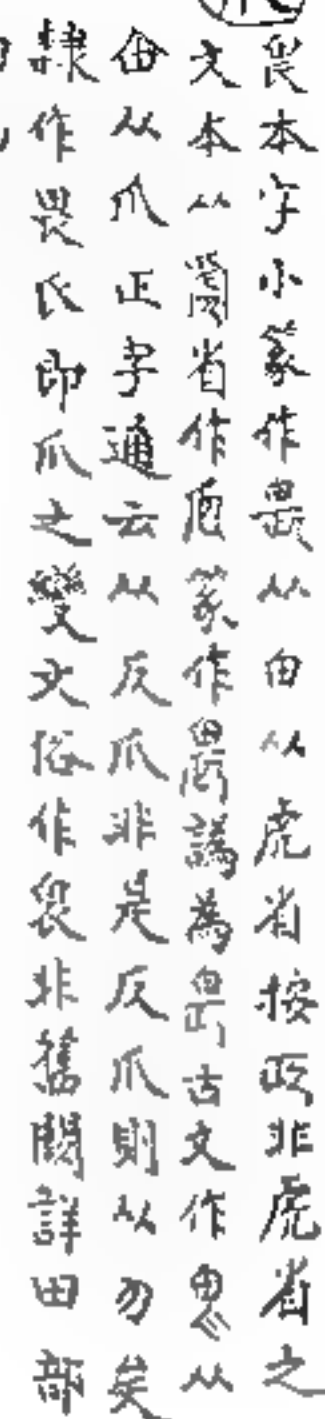 畏本字小篆作從甶从虎省按非虎省之
文本从省作篆作譌為古文作从
甶从爪正字通云从反爪非是反爪則从勿矣
隸作畏氏即爪之變文俗作非舊闕詳田部